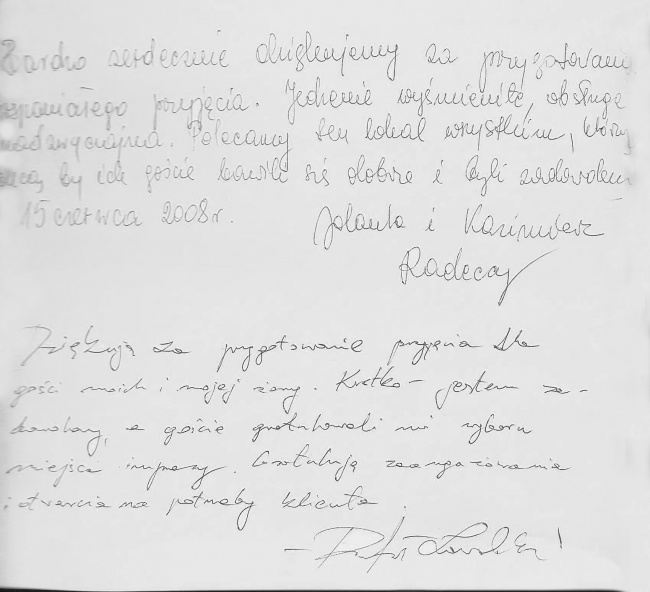 Bardzo serdecznie dziękujemy za przygotowani
wspaniałego przyjęcia. Jedzenie wyśmienite, obsługa
nadzwyczajna. Polecamy ten lokal wszystkim, którzy
chcą by ich goście bawili się dobrze i byli zadowoleni
15 czerwca 2008r. Jolanta i Kazimierz
Radeccy
Dziękuję za przygotowanie przyjęcia dla
gości moich i mojej żony. Krótko - jestem za-
dowolony, a goście gratulowali mi wyboru
miejsca imprezy. Gratuluję zaangażowania
i otwarcia na potrzeby klienta.